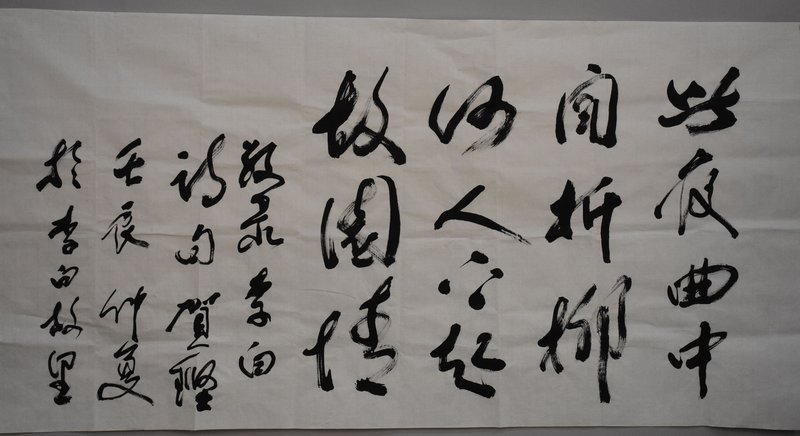 此夜曲中
闻折柳
何人不起
故园情
敬录李白
诗句 贺
壬辰仲夏
于李白故里